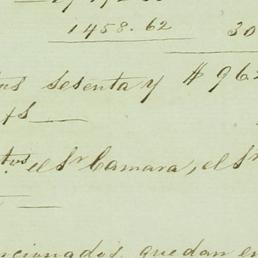 1458.62 30
sesenta y $ 962
tos. el Sr Camara, el Sr
cionados, quedan en